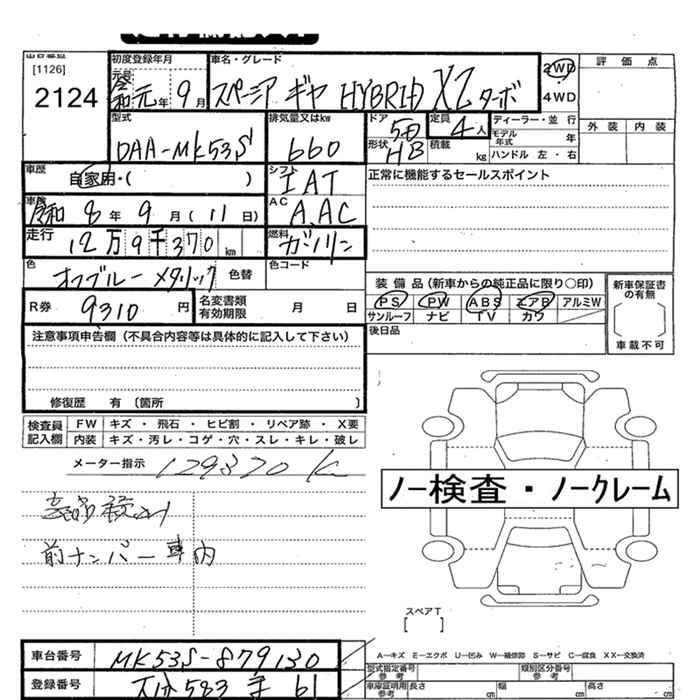 [1126]
2124
初度登録年月
令和 元年 9月
車名・グレード
スペーシア ギヤ HYBRID XZ ターボ
2WD
4WD
評価点
外装 内装
型式
DAA-MK53S
排気量又はkw
660
ドア
5
形状
HB
定員
4人
積載
kg
ディーラー・並行
モデル年式 年
ハンドル 左・右
車歴
自家用・( )
シフト
IAT
正常に機能するセールスポイント
令和 8年 9月 (11日)
AC
AAC
走行
12万9千370km
燃料
ガソリン
色
メタリック
色替
色コード
R券
9310円
名変書類有効期限
月 日
装備品(新車からの純正品に限り〇印)
PS PW ABS エアB アルミW
サンルーフ ナビ TV カワ
後日品
新車保証書の有無
車載不可
注意事項申告欄(不具合内容等は具体的に記入して下さい)
修復歴 有〔箇所 〕
検査員記入欄
FW キズ・飛石・ヒビ割・リペア跡・X要
内装 キズ・汚レ・コゲ・穴・スレ・キレ・破レ
メーター指示 129370K
ノー検査・ノークレーム
前ナンバー車内
スペアT
[ ]
A-キズ E-エクボ U-凹み W-補修跡 S-サビ C-腐食 XX-交換済
車台番号
MK53S-879130
登録番号
583 61
型式指定番号
参考
類別区分番号
参考
車庫証明用
参考
長さ cm
幅 cm
高さ cm